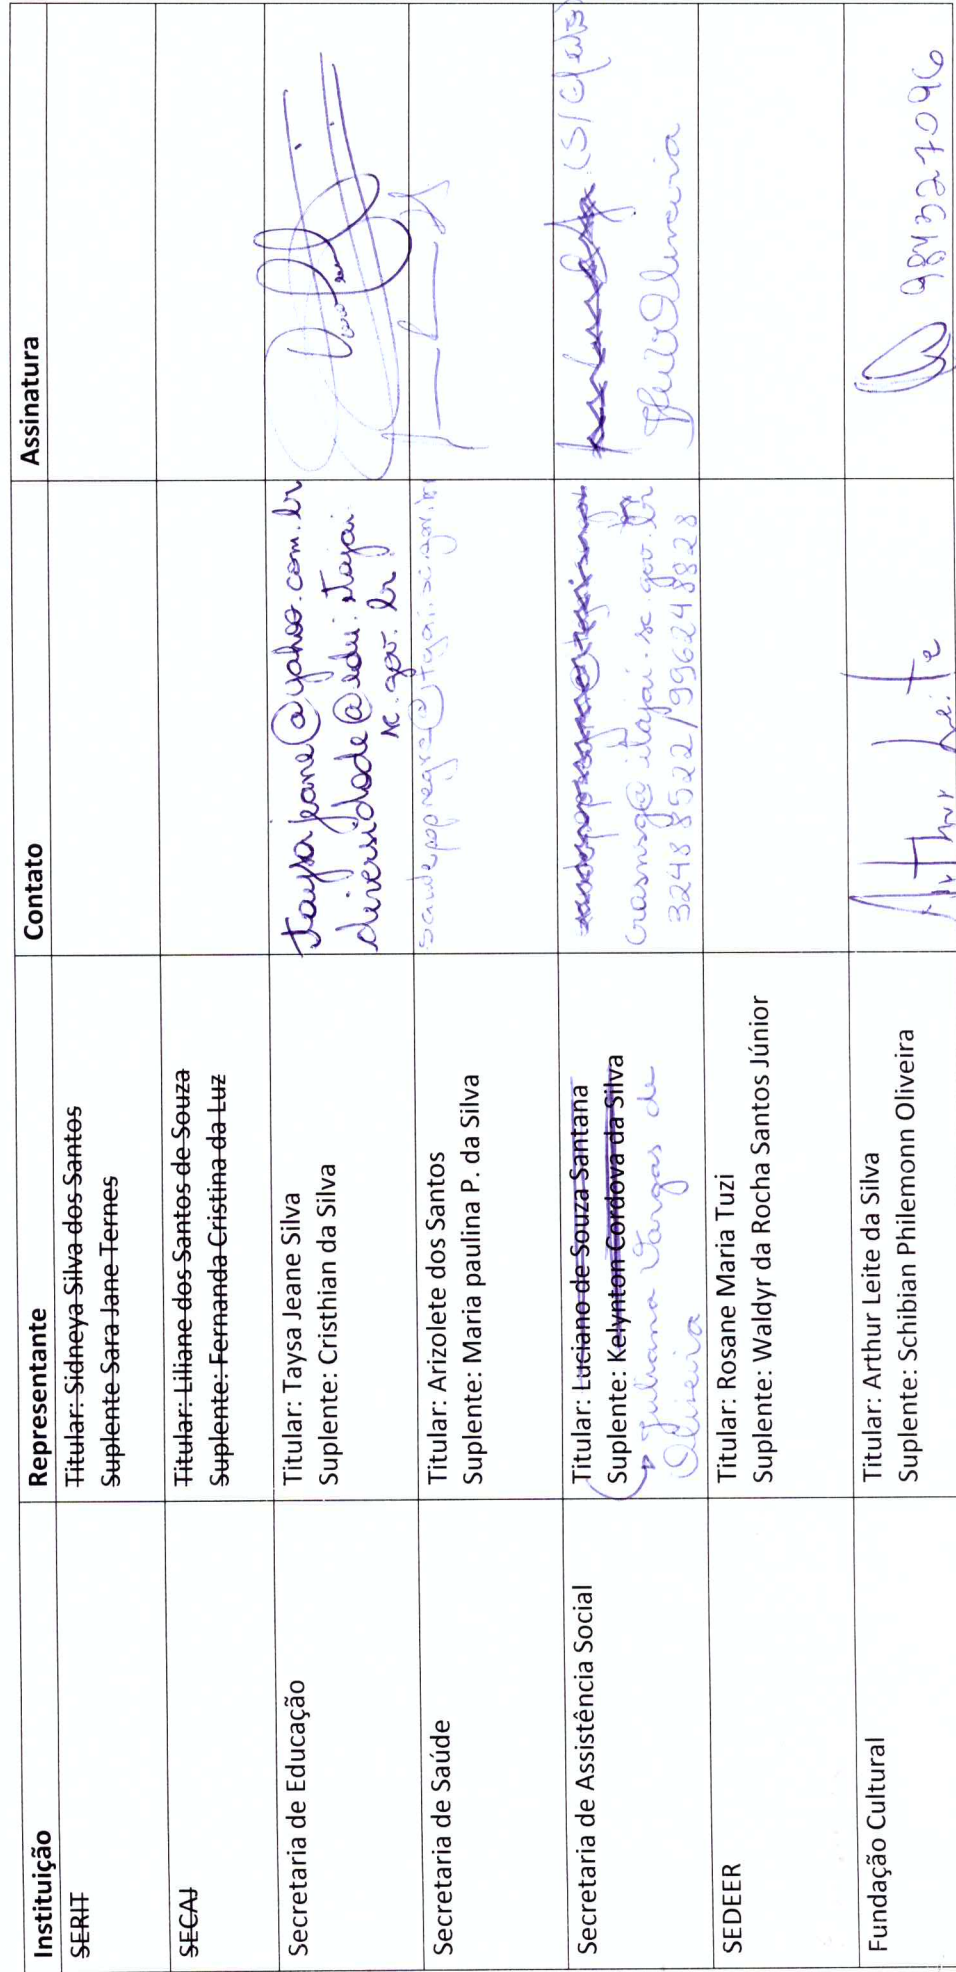 Instituição Representante Contato Assinatura
SERIT
Titular: Sidneya Silva dos Santos
Suplente Sara Jane Ternes
SECAJ
Titular: Liliane dos Santos de Souza
Suplente: Fernanda Cristina da Luz
Secretaria de Educação
Titular: Taysa Jeane Silva
Suplente: Cristhian da Silva
taysajeane@yahoo.com.br
diversidade@edu.itajai.
sc.gov.br
Secretaria de Saúde
Titular: Arizolete dos Santos
Suplente: Maria paulina P. da Silva
saudepopnegra@itajai.sc.gov.br
Secretaria de Assistência Social
Titular: Luciano de Souza Santana
Suplente: Kelynton Cordova da Silva
Juliana Vargas de
Oliveira
crasnsg@itajai.sc.gov.br
32488522/996248328
SEDEER
Titular: Rosane Maria Tuzi
Suplente: Waldyr da Rocha Santos Júnior
Fundação Cultural
Titular: Arthur Leite da Silva
Suplente: Schibian Philemonn Oliveira
Arthur Leite
984327096